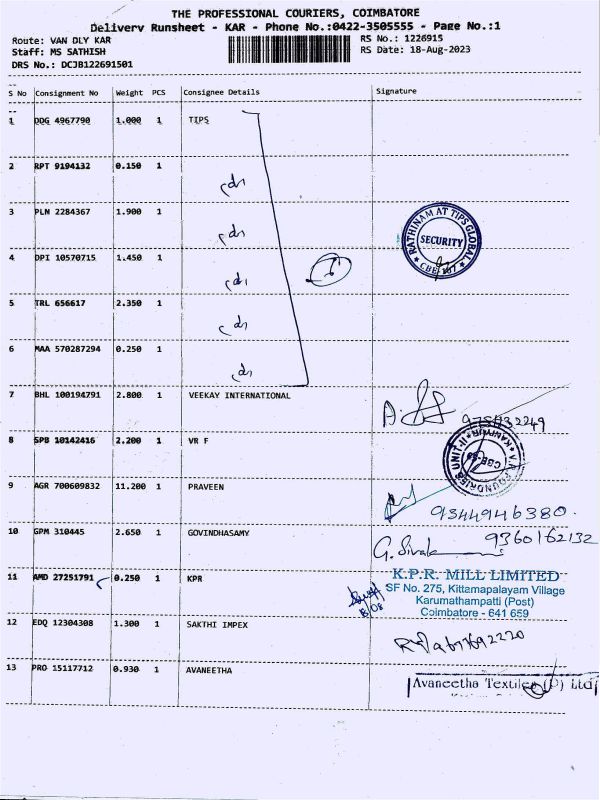 THE PROFESSIONAL COURIERS, COIMBATORE
Delivery Runsheet - KAR - Phone No.:0422-3505555 - Page No.:1
Route: VAN DLY KAR
Staff: MS SATHISH
DRS No.: DCJB122691501
RS No.: 1226915
RS Date: 18-Aug-2023
S No Consignment No Weight PCS Consignee Details Signature
1 DDG 4967790 1.000 1 TIPS
2 RPT 9194132 0.150 1
3 PLN 2284367 1.900 1
RATHINAM AT TIPS GLOBAL
SECURITY
4 DPI 10570715 1.450 1
5 TRL 656617 2.350 1
6 MAA 570287294 0.250 1
7 BHL 100194791 2.800 1 VEEKAY INTERNATIONAL
8 SPB 10142416 2.200 1 VR F
9 AGR 700609832 11.200 1 PRAVEEN
9344946380.
10 GPM 310445 2.650 1 GOVINDHASAMY
9360162132
11 AMD 27251791 0.250 1 KPR
K.P.R. MILL LIMITED
SF No. 275, Kittamapalayam Village
Karumathampatti (Post)
Coimbatore - 641 659
18/08
12 EDQ 12304308 1.300 1 SAKTHI IMPEX
13 PRO 15117712 0.930 1 AVANEETHA
Avaneetha Textiles (P) Ltd